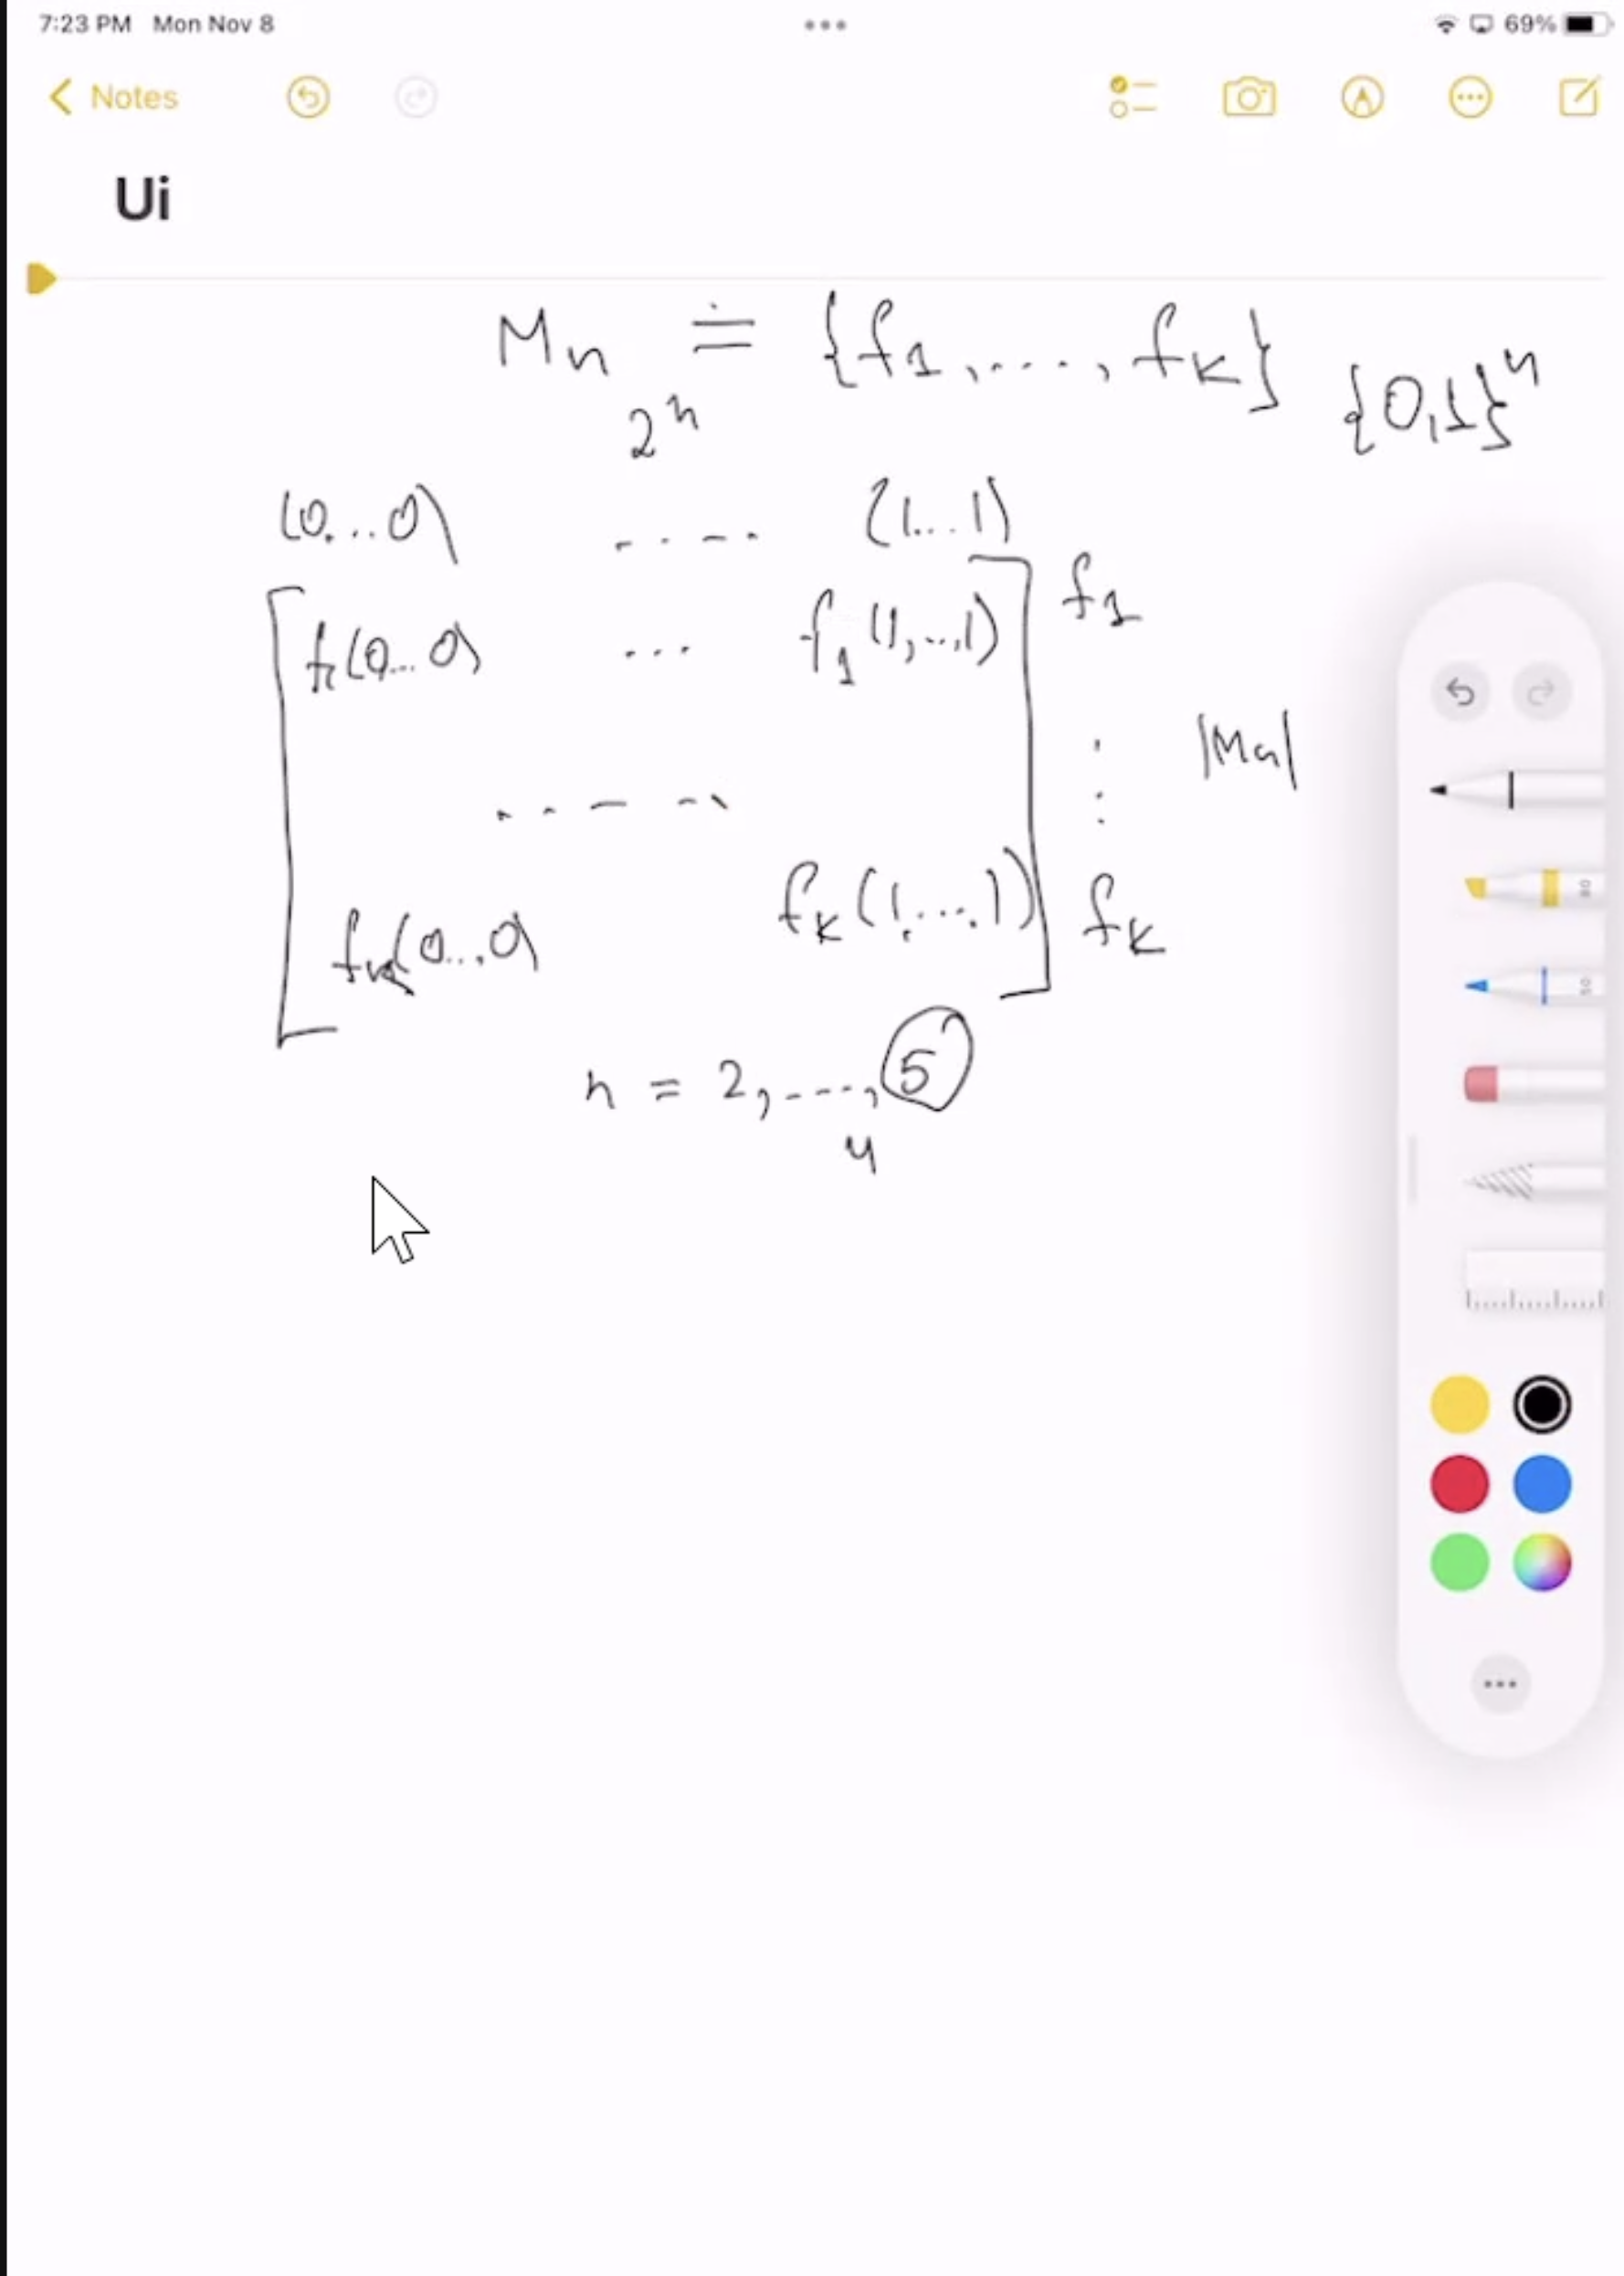 7:23 PM Mon Nov 8
69%
Notes
Ui
Mn ≐ {f1, ...., fk}
{0,1}^n
2^n
(0...0) .... (1...1)
f1(0...0) ... f1(1,...,1) f1
⋮ |Mn|
fk(0...0) fk(1,...,1) fk
n = 2, ...., 5
4
80
50